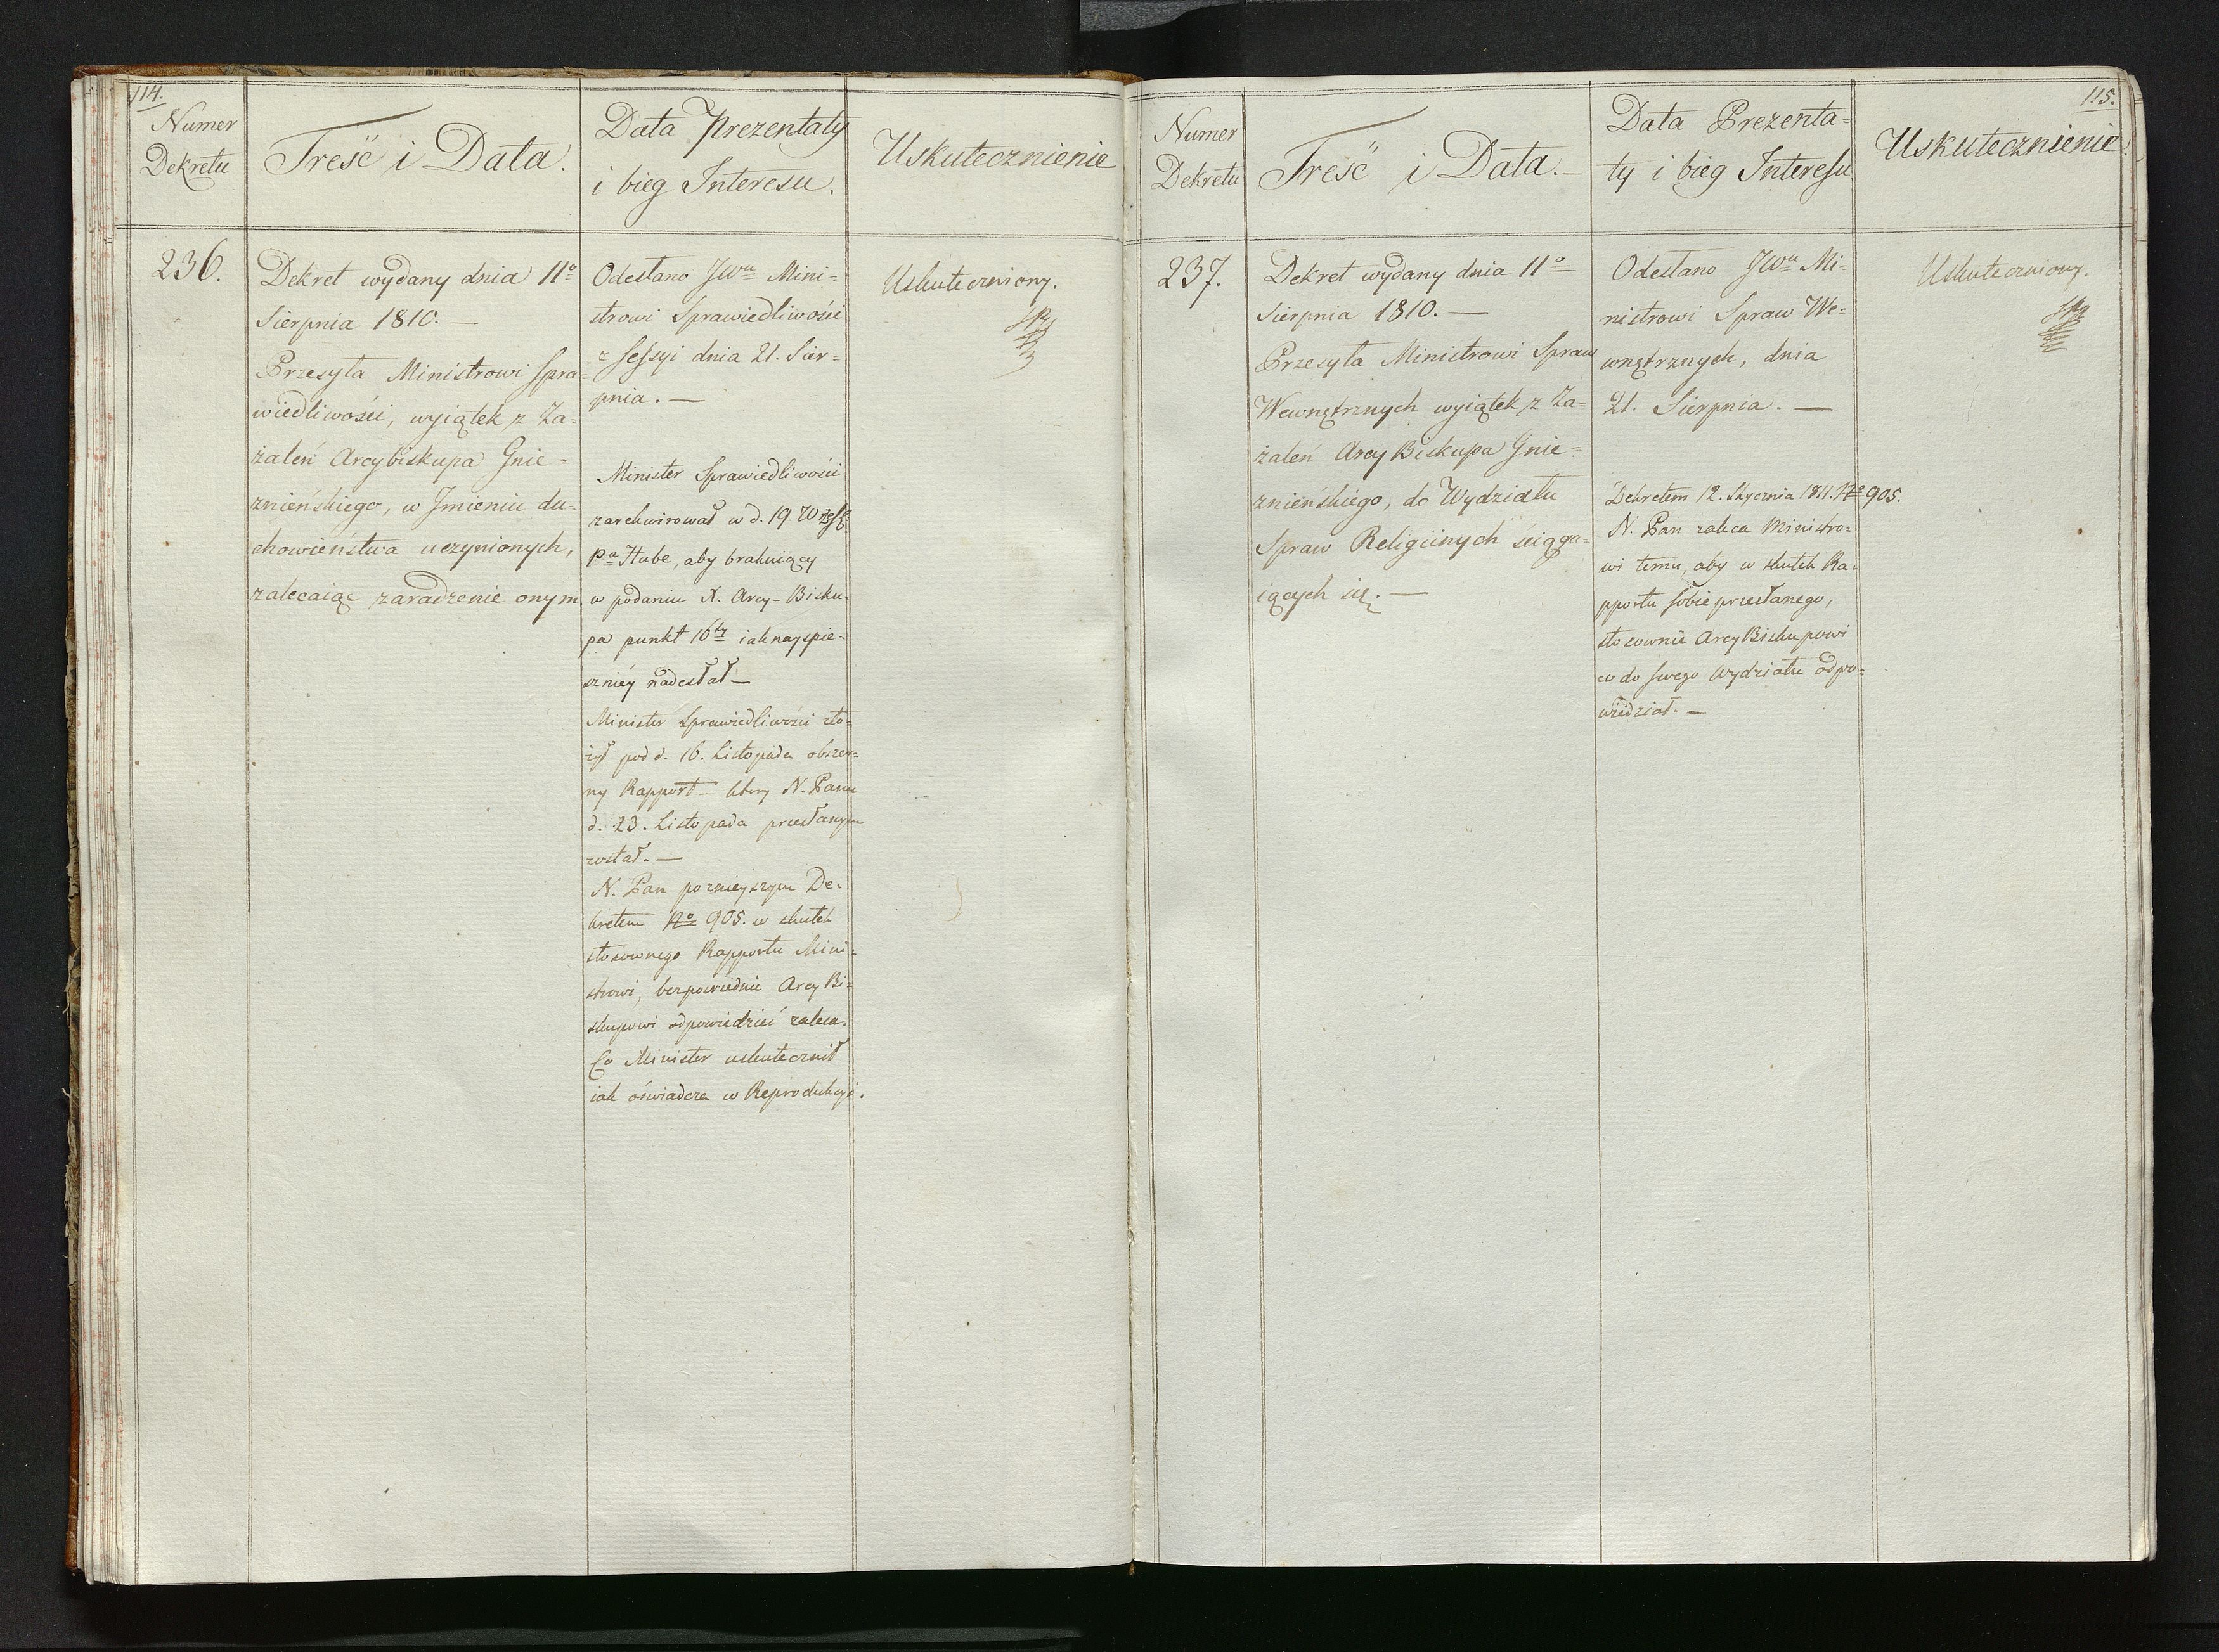 114.
Numer
Dekretu
Treść i Data.
Data Prezentaty
i bieg Interesu.
Uskutecznienie
236.
Dekret wydany dnia 11º
Sierpnia 1810. —
Przesyła Ministrowi Spra-
wiedliwości, wyiątek z Za-
żaleń Arcybiskupa Gnie-
znieńskiego, w Jmieniu du-
chowieństwa uczynionych,
zalecaiąc zaradzenie onym.
Odesłano JWu Mini-
strowi Sprawiedliwości
z Sessyi dnia 21. Sier-
pnia. —
Minister Sprawiedliwości
zarekwirował w d. 19. Wrześ
Pa Hube, aby brakuiący
w podaniu X. Arcy-Bisku-
pa punkt 16ty iak nayspie-
szniéy nadesłał —
Minister Sprawiedliwości zło-
żył pod d. 16. Listopada obszer-
ny Rapport — który N. Panu
d. 23. Listopada przesłanym
został. —
N. Pan poznieyszym De-
kretem No 905. w skutek
stosownego Rapportu Mini-
strowi, bezpośrednie Arcy Bi-
skupowi odpowiedzieć zaleca.
Co Minister uskutecznił
iak oświadcza w Reprodukcyi.
Uskuteczniony.
115.
Numer
Dekretu
Treść i Data. —
Data Prezenta-
ty i bieg Interesu
Uskutecznienie.
237.
Dekret wydany dnia 11º
Sierpnia 1810. —
Przesyła Ministrowi Spraw
Wewnętrznych wyiątek z Za-
żaleń Arcy Biskupa Gnie-
znieńskiego, do Wydziału
Spraw Religiinych ściąga-
iących się. —
Odesłano JWu Mi-
nistrowi Spraw We-
wnętrznych, dnia
21. Sierpnia. —
Dekretem 12. Stycznia 1811. No 905.
N. Pan zaleca Ministro-
wi temu, aby w skutek Ra-
pportu sobie przesłanego,
stosownie Arcy Biskupowi
co do swego wydziału odpo-
wiedział. —
Uskuteczniony.